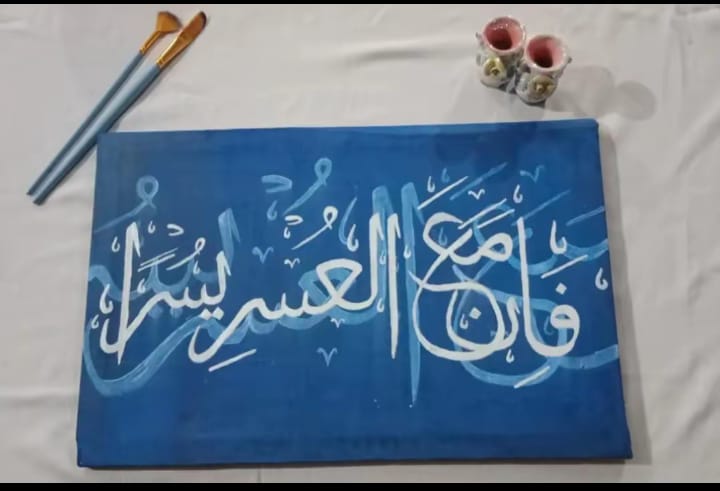 فَإِن مَعَ العُسْرِ يُسْرًا